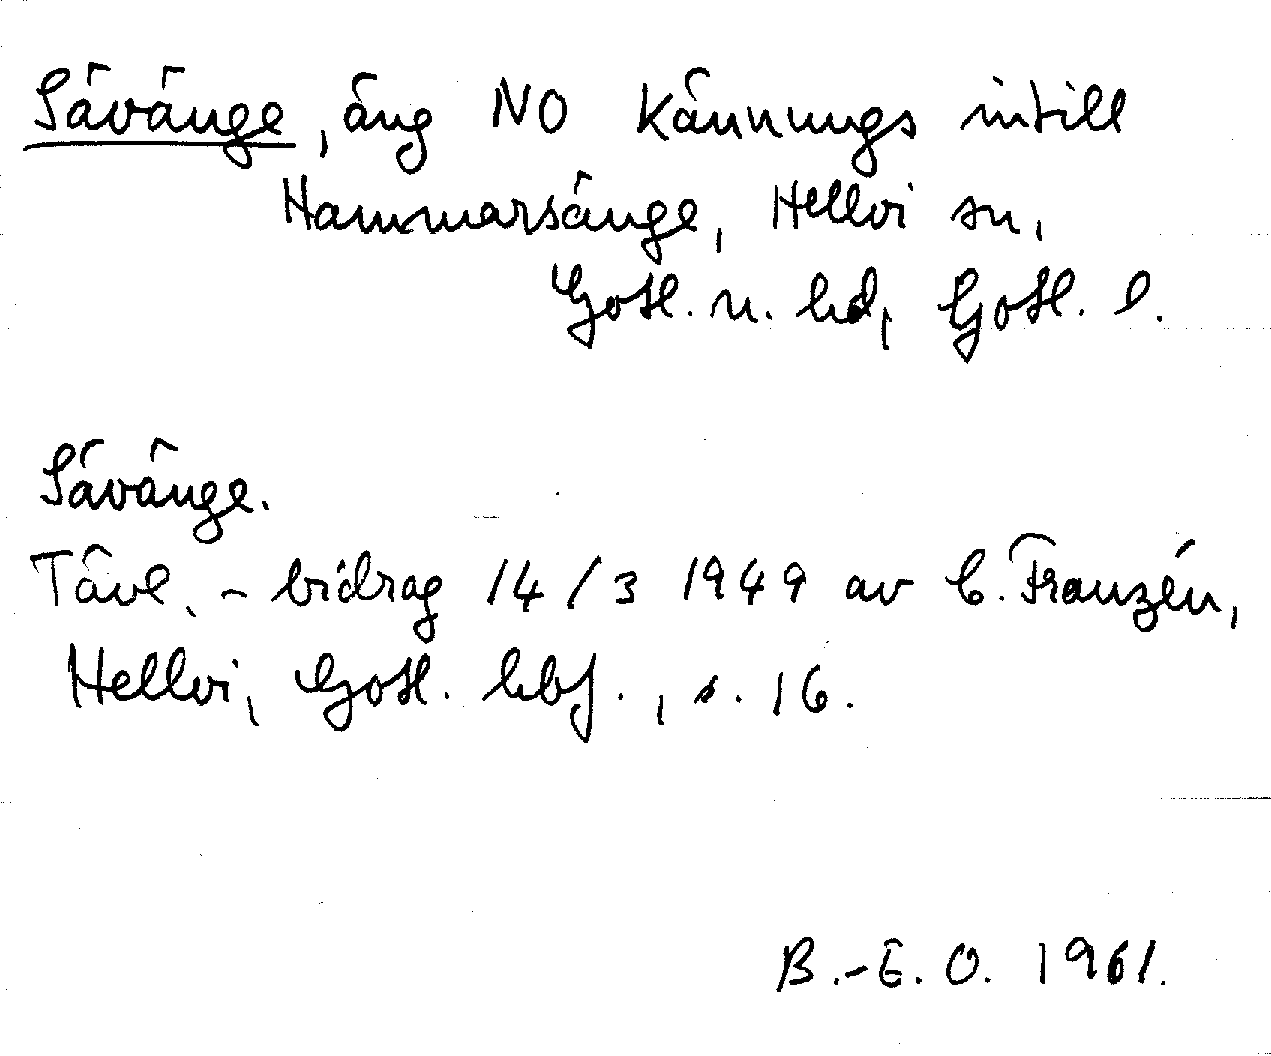 Sävänge, äng NO Kännungs intill
Hammarsänge, Hellvi sn,
Gotl. n. hd, Gotl. l.
Sävänge.
Tävl.-bidrag 14/3 1949 av C. Franzén,
Hellvi, Gotl. hbf., s. 16.
B.-E. O. 1961.